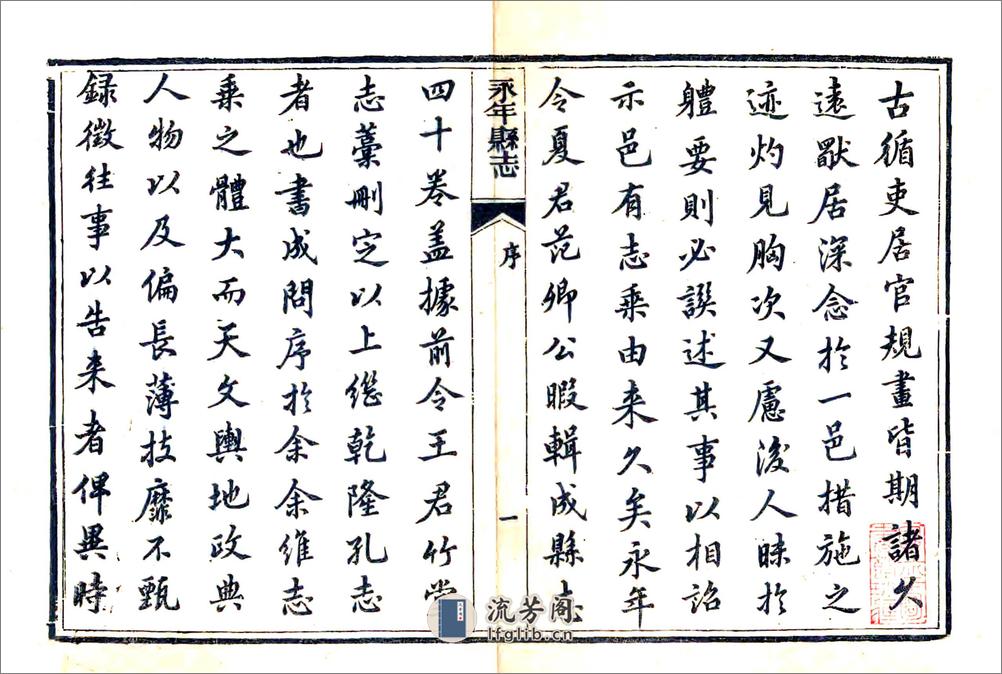 古循吏居官規畫皆期諸久
遠猷居深念於一邑措施之
迹灼見胸次又慮後人昧於
體要則必譔述其事以相詔
示邑有志乘由来久矣永年
令夏君范卿公暇輯成縣志
永年縣志
序
一
四十卷盖據前令王君竹堂
志藁刪定以上繼乾隆孔志
者也書成問序於余余維志
乘之體大而天文輿地政典
人物以及偏長薄技靡不甄
録徵往事以告来者俾異時
流芳阁
lfglib.cn